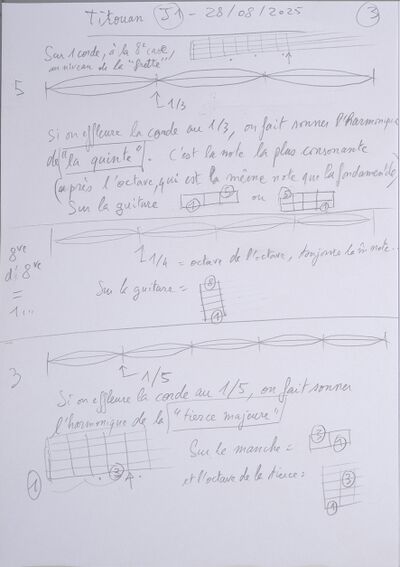 Titouan J1 - 28/08/2025 3
Sur 1 corde, à la 8e case,
au niveau de la "frette"
5
1/3
Si on effleure la corde au 1/3, on fait sonner l'harmonique
de "la quinte". C'est la note la plus consonante
(après l'octave, qui est la même note que la fondamentale)
Sur la guitare 1 5 ou 5 1
8ve
d'8ve
=
1...
1/4 = octave de l'octave, toujours la m note...
Sur la guitare = 8 1
3
1/5
Si on effleure la corde au 1/5, on fait sonner
l'harmonique de la "tierce majeure"
1 3
Sur le manche = 3 1
et l'octave de la tierce: 3 1